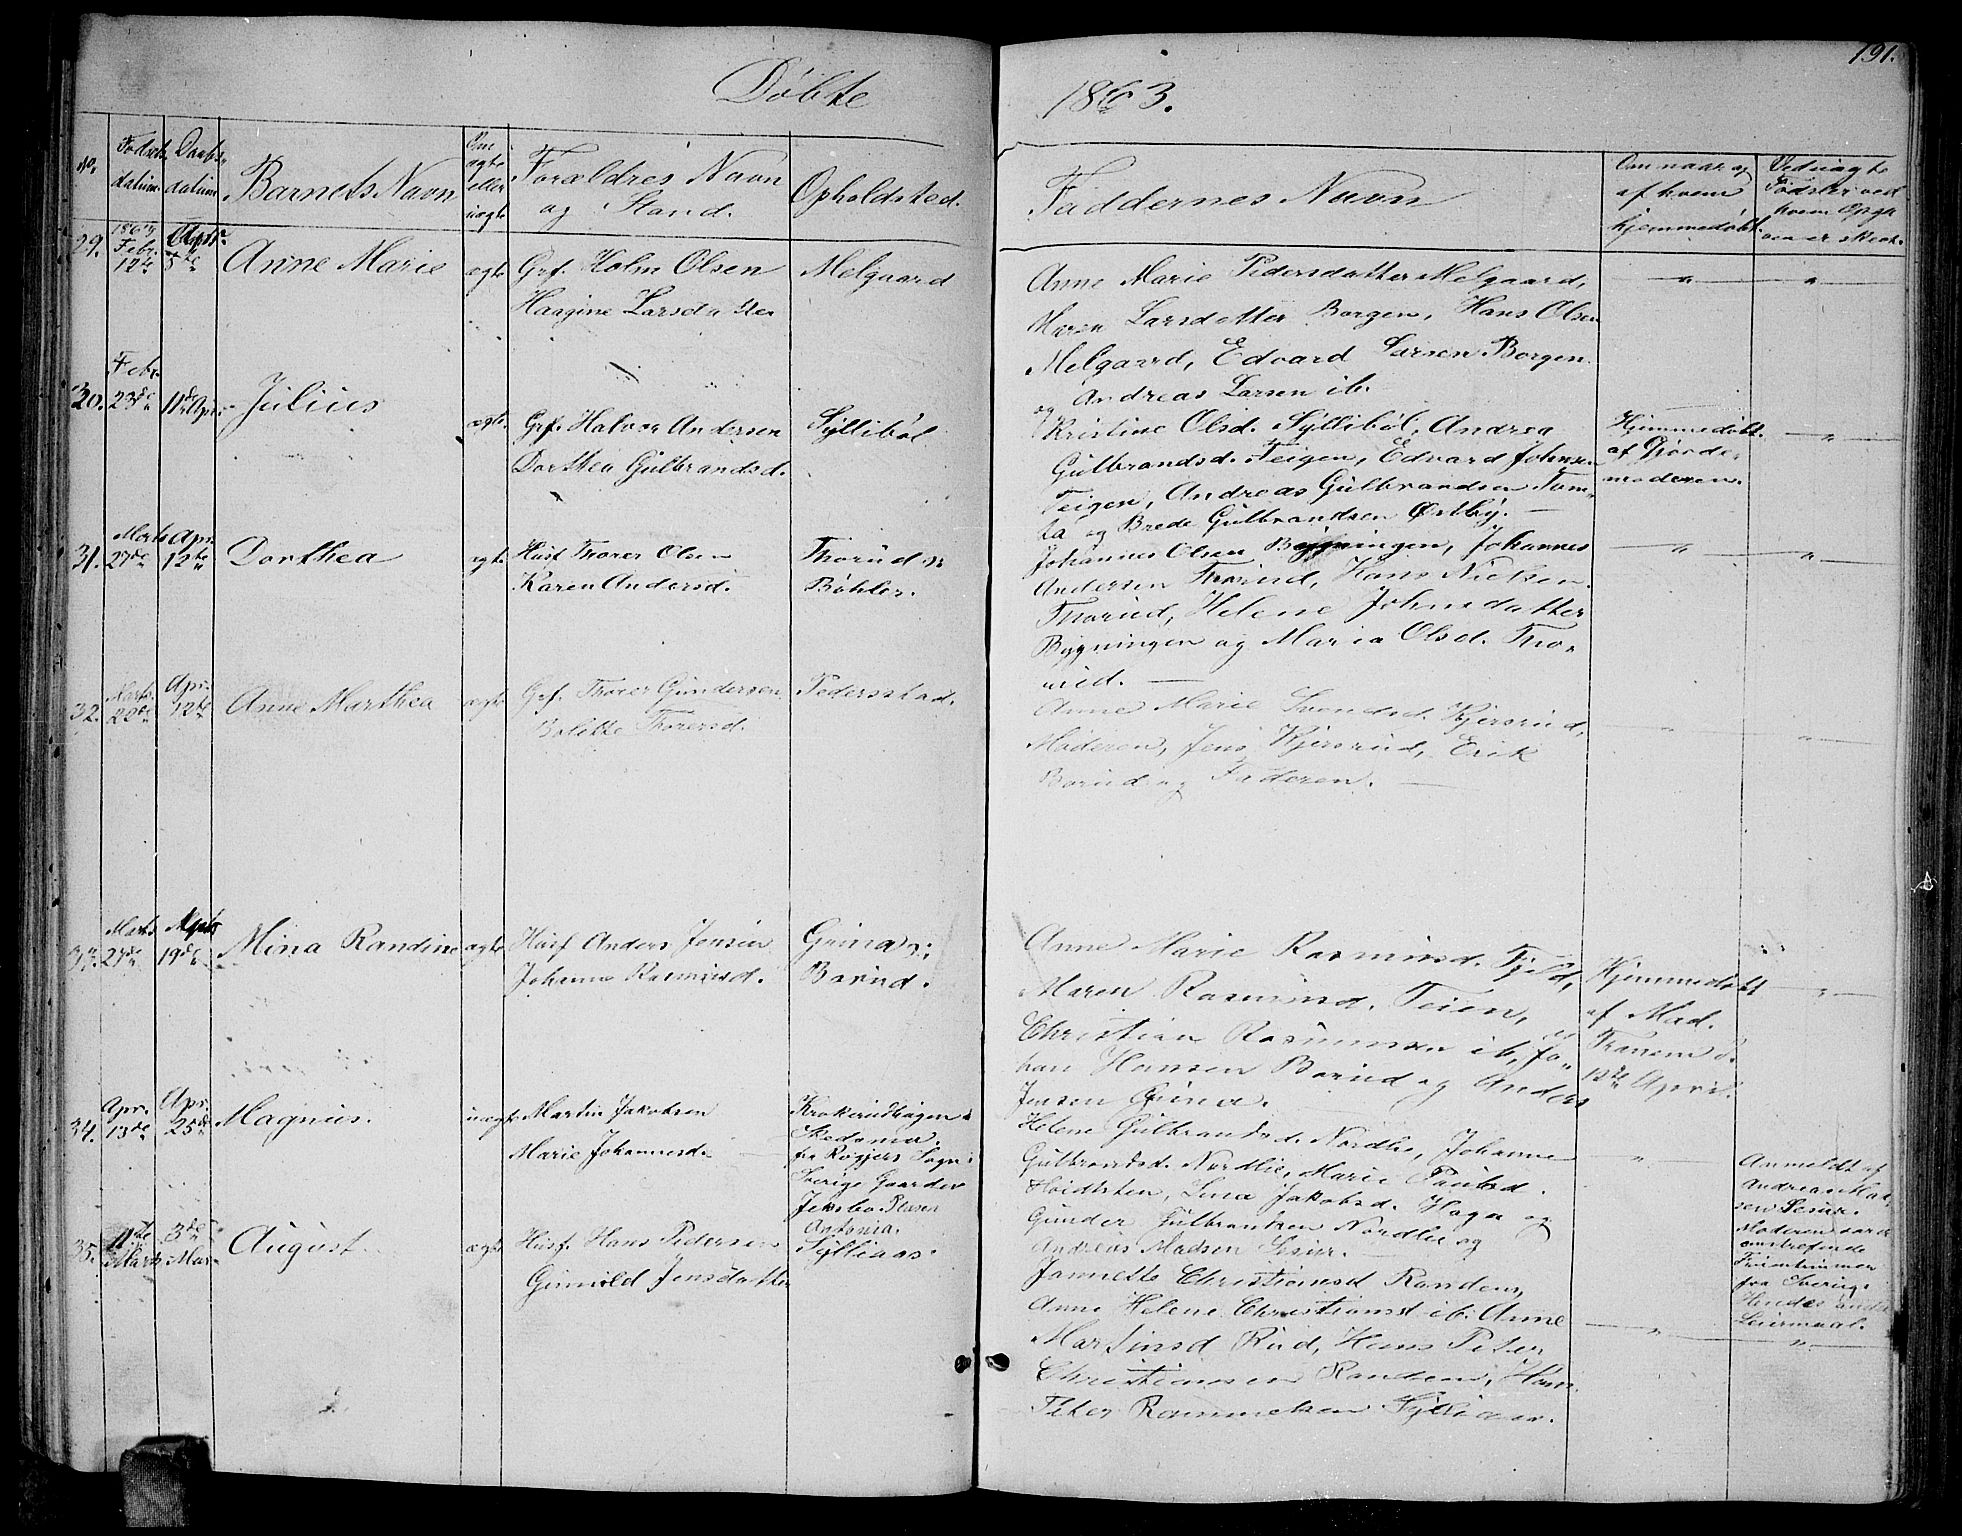 Döbte
1863.
191.
No.
Födsels
datum
Daabs
datum
Barnets Navn
Om
ægte
eller
uægte
Forældres Navn
og Stand.
Opholdsted.
Faddernes Navn
Om naar og
af hvem
hjemmedöbt
Ved uægte
Födsler ved
hvem Opga
ven er skeet.
29.
1863
Febr.
12te
Apr.
5te
Anne Marie
ægte
Grf. Holm Olsen
Haagine Larsdatter
Melgaard
Anne Marie Pedersdatter Melgaard,
Maren Larsdatter Borgen, Hans Olsen
Melgaard, Edvard Larsen Borgen
og Andreas Larsen ib.
30.
Febr.
23de
11te Apr.
Julius
ægte.
Grf. Halvor Andersen
Dorthea Gülbrandsd.
Syllibøl
Kristine Olsd. Syllibøl, Andrea
Gülbrandsd. Teigen, Edvard Johnsen
Teigen, Andreas Gülbrandsen Tom-
ta og Brede Gülbrandsen Østby.
Hjemmedöbt
af Gjorde-
moderen.
31.
Marts
27de
Apr.
12te
Dorthea
ægte
Husf. Thorer Olsen
Karen Andersd.
Thorüd
Böhler.
Johannes Olsen Bygningen, Johannes
Andersen Thorüd, Hans Nielsen
Thorüd, Helene Johnsdatter
Bygningen og Maria Olsd. Tho-
rüd.
32.
Marts
22de
Apr.
12te
Anne Marthea
ægte
Grf. Thorer Gündersen
Bolette Thorersd.
Pedersstad.
Anne Marie Svendsd. Kjersrüd,
Moderen, Jens Kjersrüd, Erik
Borüd og Faderen.
33.
Marts
27de
19de
Mina Randine
ægte
Husf Anders Jensen
Johanne Rasmüsd.
Grina
Borüd.
Anne Marie Rasmüsd. Fjeld,
Maren Rasmüsd. Teien,
Christian Rasmussen ib, Jo-
han Hansen Borüd og Anders
Jensen Grina.
Hjemmedöbt
af Mad.
12te April.
34.
Apr.
13de
Apr.
25de
Magnüs.
uægte
Martin Jakobsen
Marie Johannesd.
Krokerüdhagen i
Skedsmo.
fra Sogn i
Sverige Gaarden
Helene Gülbrandsd. Nordlie, Johanne
Gülbrandsd. Nordlie, Marie Paülsd.
Hoidtsten, Lina Jakobsd. Haga og
Günder Gülbrandsen Nordlie og
Andreas Madsen
Anmeldt af
Andreas Mad-
sen
Moderen
omstreifende
Früentimmer
fra Sverige
Hendes andet
Leiermaal.
35.
11te
Marts
3de
Mai
August
ægte
Husf. Hans Pedersen
Günild Jensdatter
Sylliaas.
Jannette Christiansd Randem,
Anne Helene Christiansd ib. Anne
Martinsd Rüd, Hans Peter
Christiansen Randem, Hans
Peter Sylliaas.